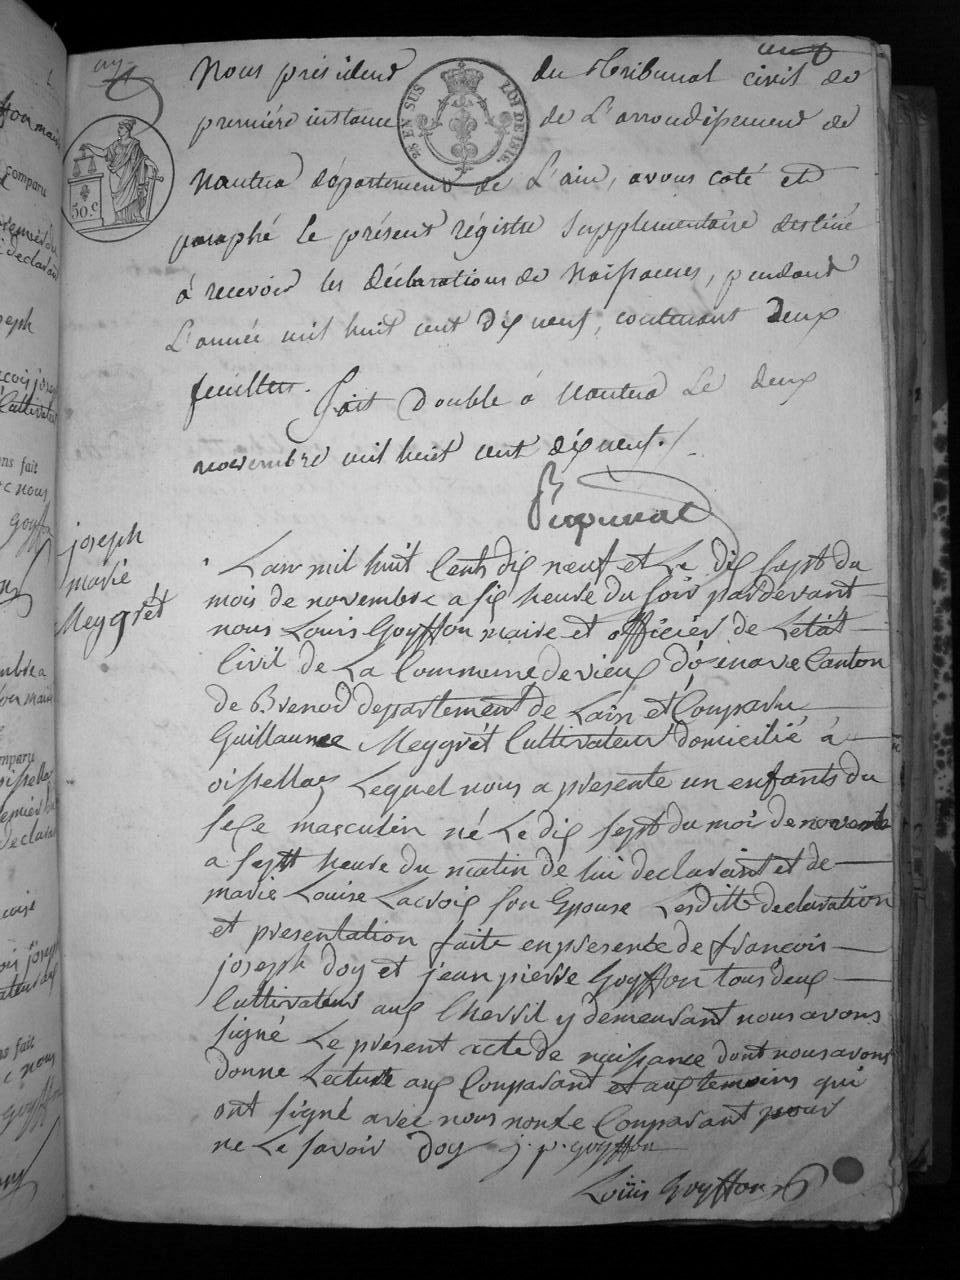 Nous président du tribunal civil de
première instance de L'arrondissement de
Nantua département de L'ain, avons coté et
paraphé le présent régistre supplémentaire destiné
à recevoir les déclarations de Naissances, pendant
L'année mil huit cent dix neuf, contenant deux
feuillets. Fait Double à Nantua Le deux
novembre mil huit cent dix neuf./.
25 EN SUS LOI DE 1816.
50.c
joseph
marie
Meygrét
L'an mil huit Cents dix neuf et Le dix sept du
mois de novembre a six heure du soir pardevant
nous Louis Goyffon maire et officier de Letat
Civil de La Commune de vieux d'ozenave Canton
de Brenod departement de Lain et Comparu
Guillaume Meygrét Cultivateur domicilié à
oissellaz Lequel nous a presente un enfants du
sexe masculin né Le dix sept du moi de novembre
a septt heure du matin de lui declarant et de
marie Louise Lacroix son Epouse Lesditte declaration
et presentation faite en presence de françois
joseph doy et jean pierre Goyffon tous deux
Cultivateur aux Lhervil y demeurant nous avons
signé Le present acte de naissance dont nous avons
donne Lecture aux Comparant et aux temoins qui
ont signé avec nous non Le Comparant pour
ne Le savoir doy j. p. goyffon
Louis Goyffon